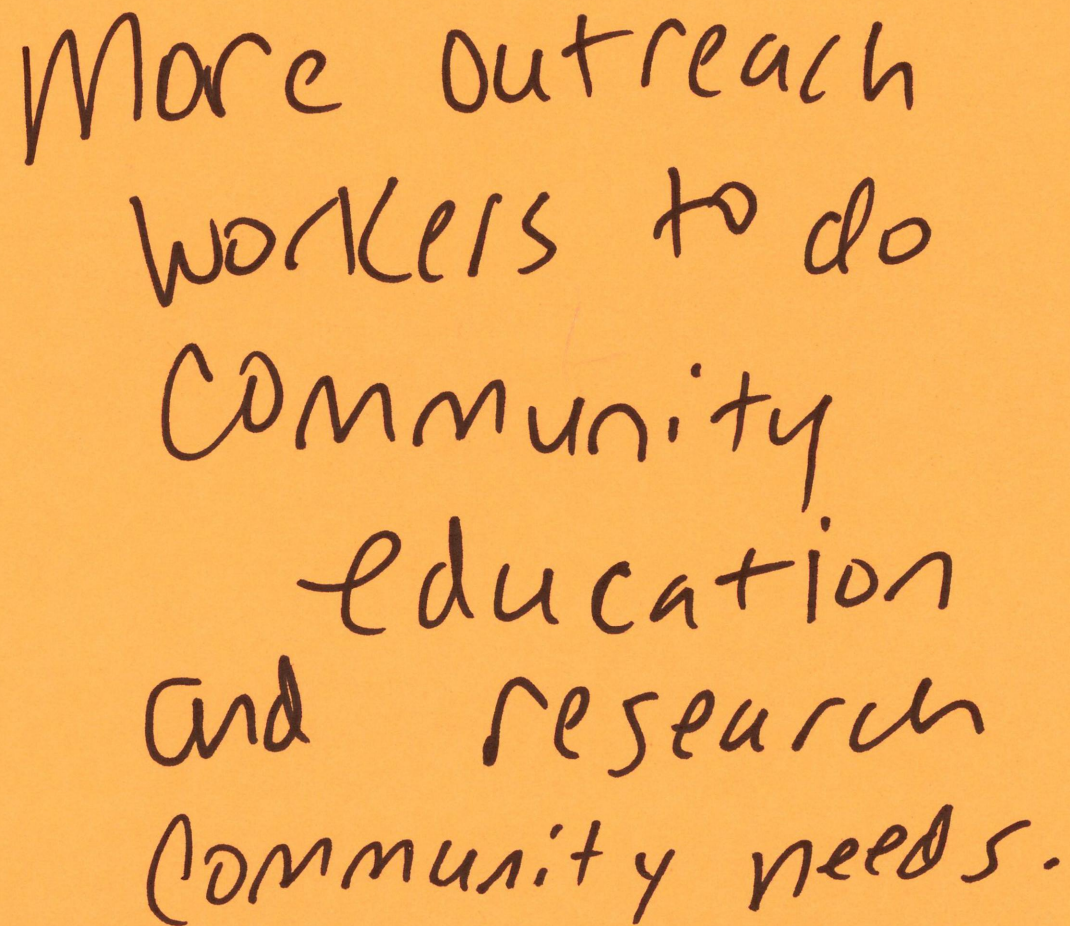 More outreach
workers to do
community
education
and research
community needs.